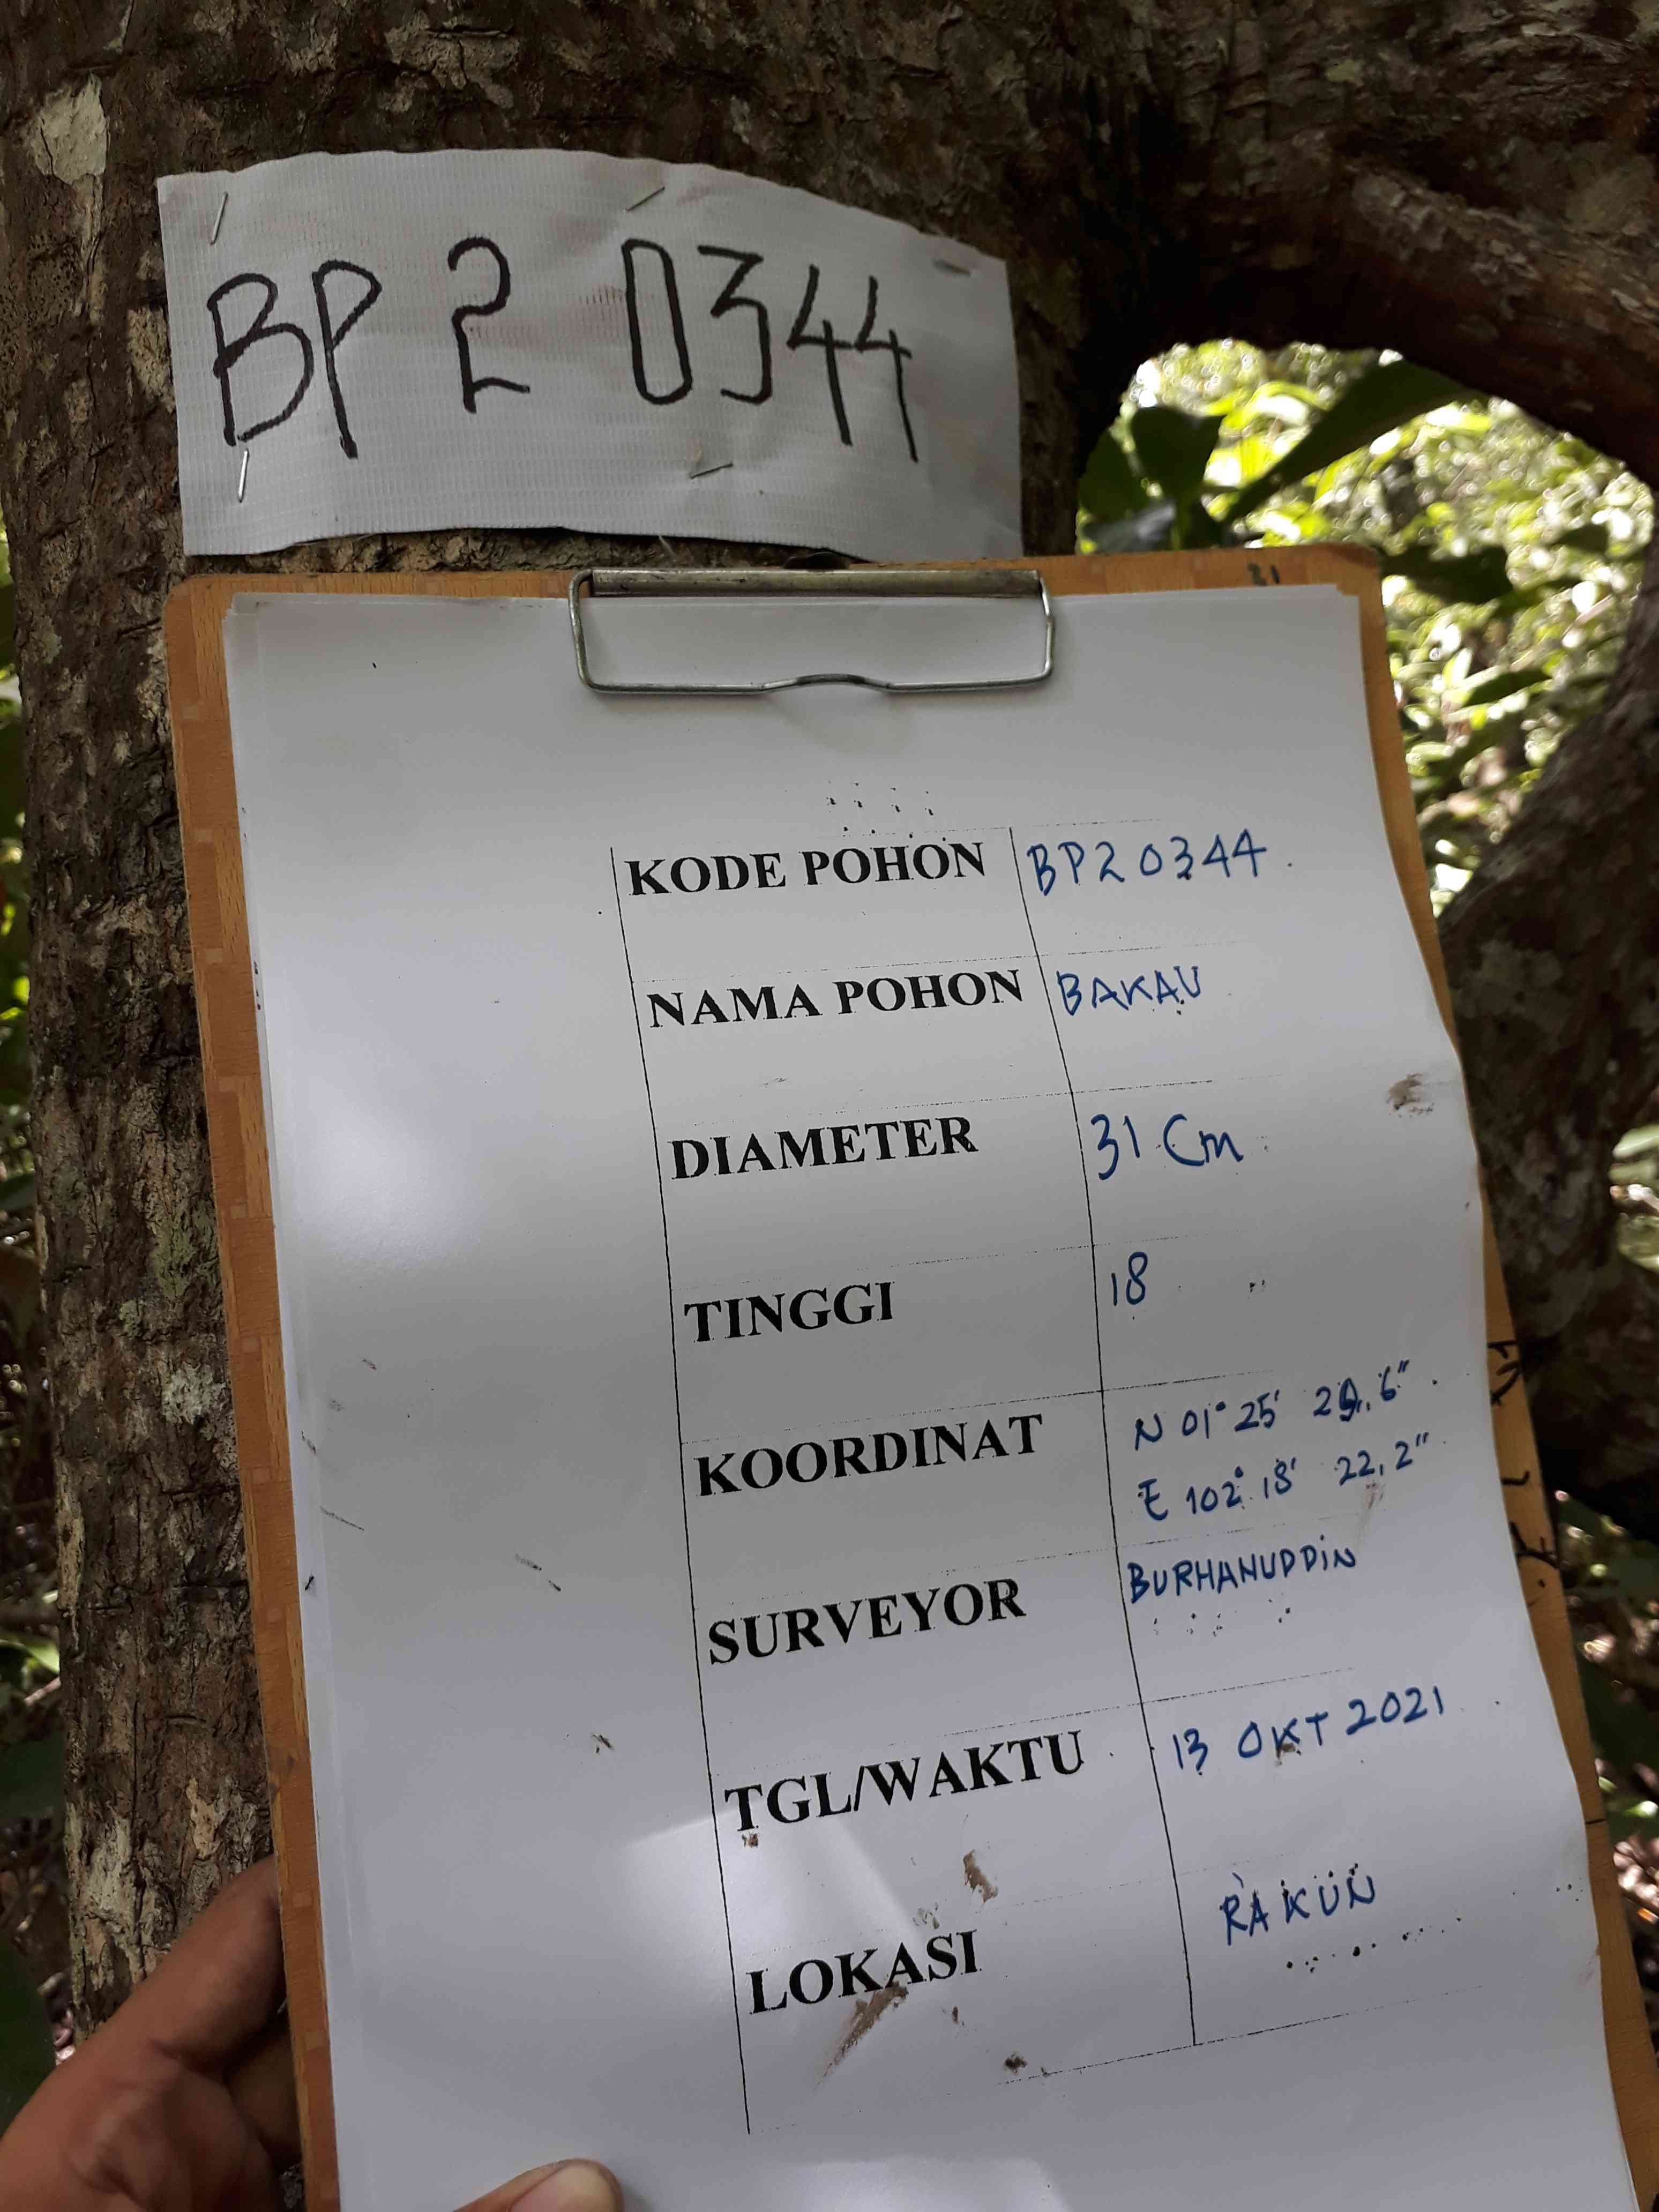 BP 2 0344
KODE POHON BP2 0344
NAMA POHON BAKAU
DIAMETER 31 Cm
TINGGI 18
KOORDINAT N 01° 25' 6"
E 102° 18' 22,2"
SURVEYOR BURHANUDDIN
TGL/WAKTU 13 OKT 2021
LOKASI RAKUN